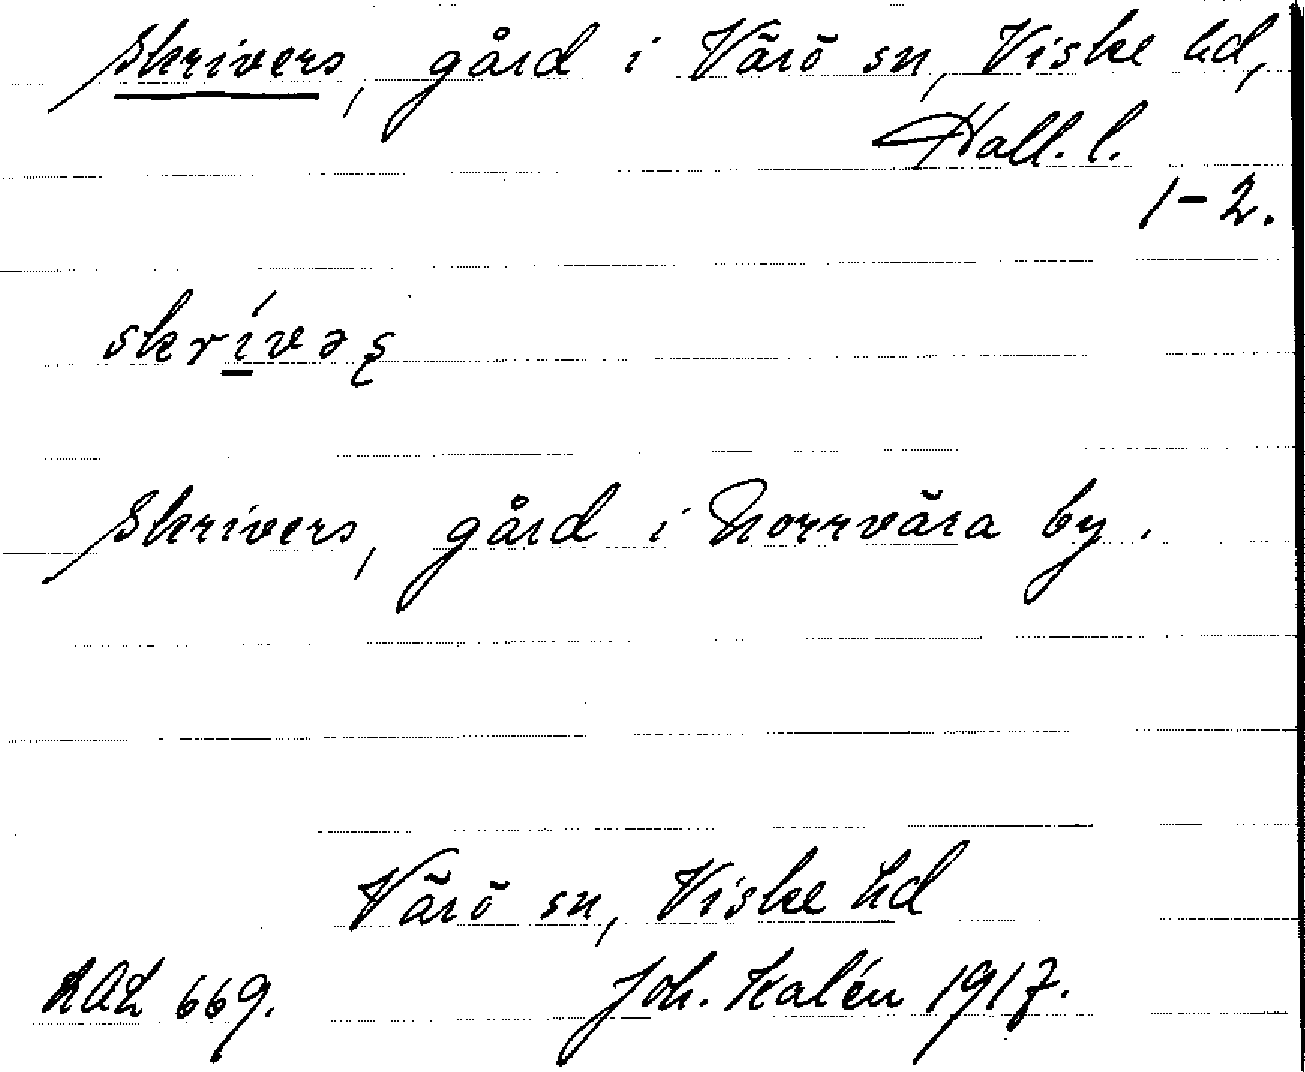 Skrivers, gård i Värö sn, Viske hd,
Hall. l.
1-2.
skrívəʂ
Skrivers, gård i Norrvära by.
Värö sn, Viske hd
669. Joh. Kalén 1917.